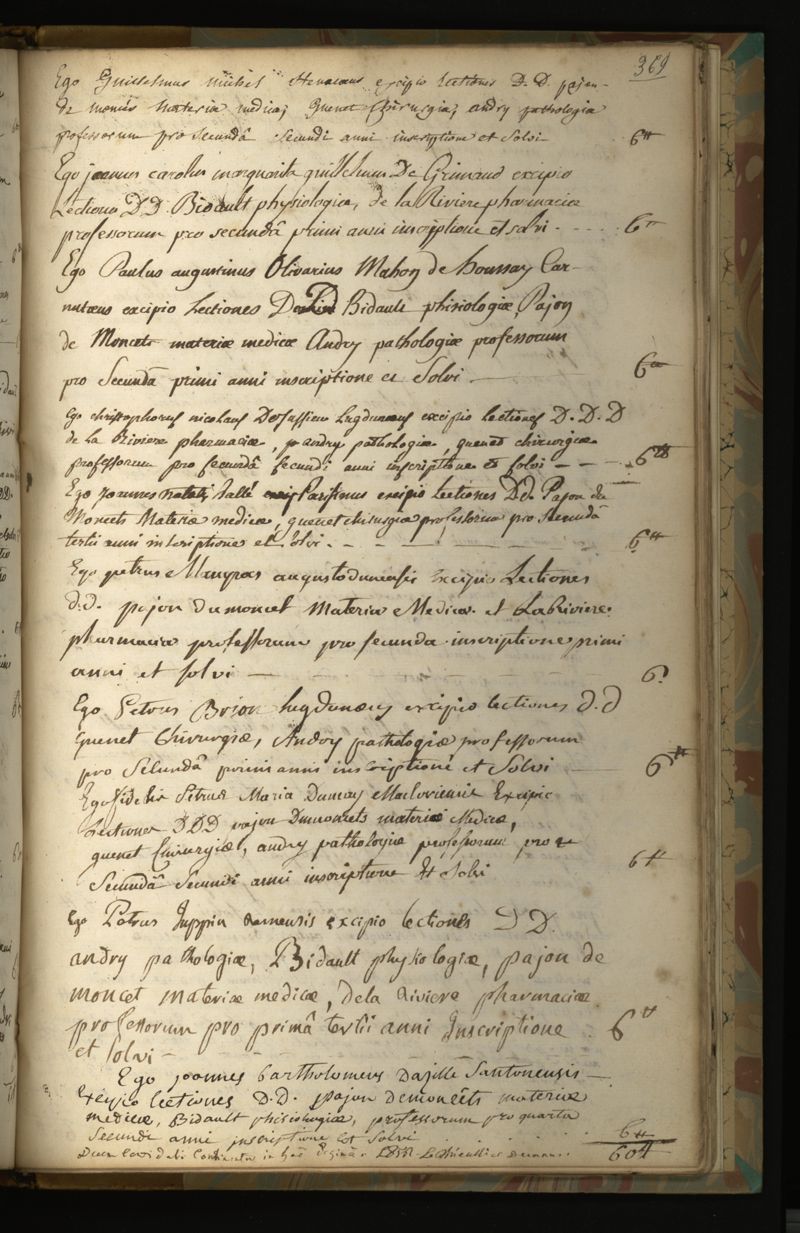 369
Ego Guillelmus michel excipio lectiones D.D. pajon
de moncets materia medica, quenet Chirurgia, andry pathologia
professorum pro secundâ secundi anni inscriptione et solvi 6ᵗᵗ
Ego joannes carolus margarita guillelmus De Grimaud excipio
Lectiones D.D. Bidault physiologiæ, de la Riviere pharmaciæ
professorum pro secundâ primi anni inscriptione et solvi - - - - 6ᵗᵗ
Ego Paulus augustinus Olivarius Mahon de houssay Car-
nutæus excipio Lectiones D Bidault phisiologiæ, Pajon
de Moncets materiæ medicæ Andry pathologiæ professorum
pro Secundâ primi anni inscriptione et Solvi — 6ᵗᵗ
Ego christophorus nicolaus Dessaffieux Lugdunæus excipio lectiones D.D.D
de la Riviere pharmaciæ, andry pathologiæ, quenet chirurgiæ
professorum pro secundâ secundi anni inscriptione et solvi - - - 6ᵗᵗ
Ego joannes natalis hallé Parisinus excipio Lectiones D.d. Pajon du
Moncets Materiæ medicæ, quenet chirurgiæ professorum pro secundâ
tertii anni inscriptione et solvi - - - 6ᵗᵗ
Ego petrus augustodunensis excipio Lectiones
d.d. pajon du moncet Materia Medica et La Riviere
pharmacia professorum pro secunda inscriptione primi
anni et solvi - - - 6
Ego Petrus Brion lugdunæus excipio lectiones d.d
quenet Chirurgiæ, Andry pathologiæ professorum
pro Secundâ primi anni inscriptione et Solvi — 6ᵗᵗ
Ego fidelis Petrus Maria Dumay Macloviensis Excipio
Lectiones DDD pajon Dumoncets materiæ Medicæ,
quenet Chirurgiæ, andry pathologiæ professorum pro
Secundâ Secundi anni inscriptione Et Solvi 6ᵗᵗ
Ego Petrus Juppin excipio lectiones D D.
andry pathologiæ, Bidault physiologiæ, pajon de
moncet materiæ medicæ, De la Riviere pharmaciæ
professorum pro primâ tertii anni Inscriptione 6ᵗᵗ
et solvi - - -
Ego joannes bartholomeus Dazille Santonensis
Excipio lectiones D.D. pajon demoncets materiæ
medicæ, Bidault phisiologiæ, professorum pro quarta
Secundi anni inscriptione et solvi . . . . 6ᵗᵗ
in hac pagina Le Thieullier decanus . . 60ᵗᵗ